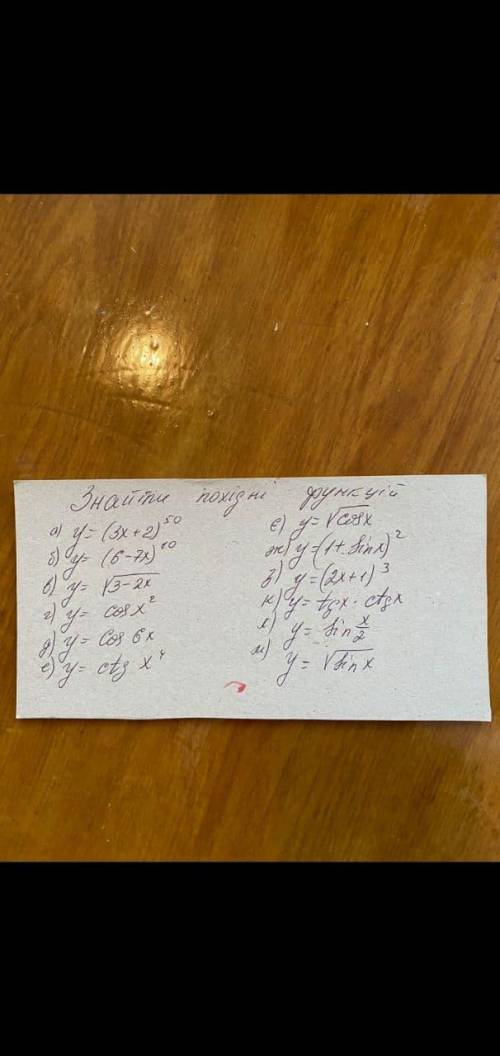 Знайти похідні функцій
а) y = (3x+2)^50
б) y = (6-7x)^10
в) y = √(3-2x)
г) y = cos x^2
д) y = cos 6x
е) y = ctg x^4
є) y = √(cos x)
ж) y = (1 + sin x)^2
з) y = (2x+1)^3
к) y = tg x · ctg x
л) y = sin x/2
м) y = √(sin x)